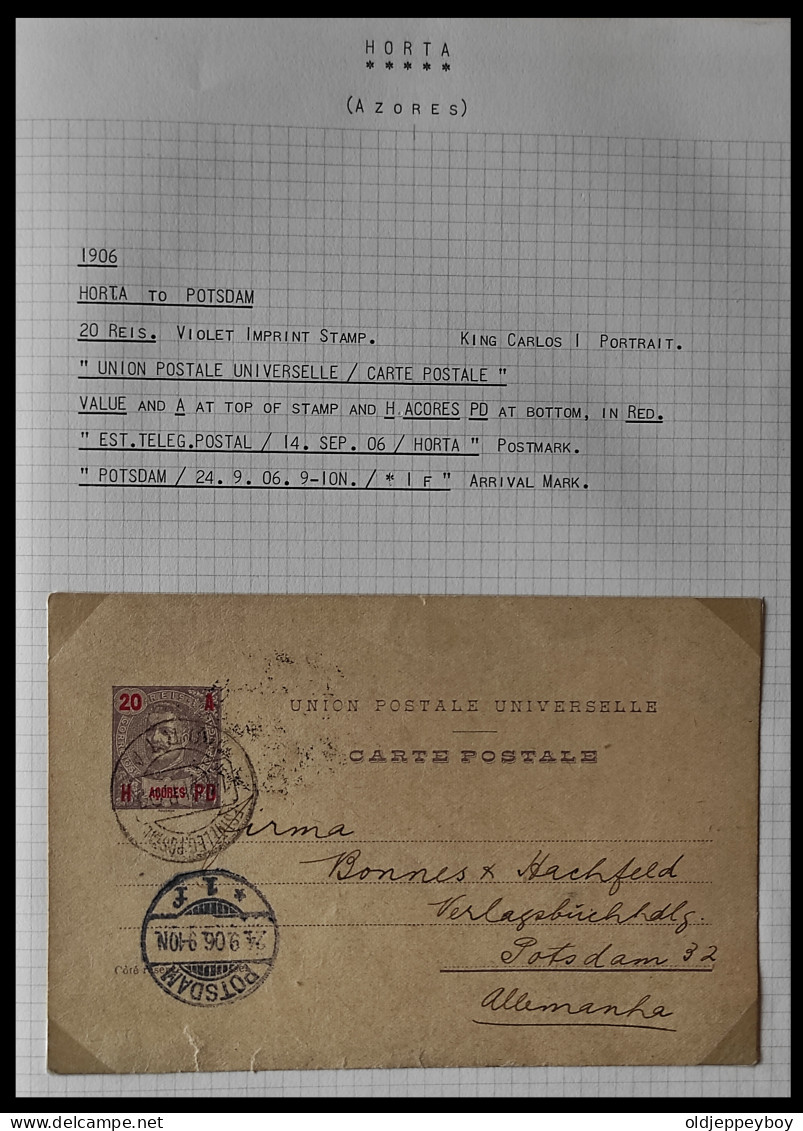 HORTA
*****
(AZORES)
1906
HORTA TO POTSDAM
20 REIS. VIOLET IMPRINT STAMP. KING CARLOS I PORTRAIT.
" UNION POSTALE UNIVERSELLE / CARTE POSTALE "
VALUE AND A AT TOP OF STAMP AND H.ACORES PD AT BOTTOM, IN RED.
" EST.TELEG.POSTAL / 14. SEP. 06 / HORTA " POSTMARK.
" POTSDAM / 24. 9. 06. 9-ION. / * I F " ARRIVAL MARK.
20 REIS A
H AÇORES PD
UNION POSTALE UNIVERSELLE
CARTE POSTALE
EST.TELEG.POSTAL
Firma
Bonnes & Hachfeld
Verlagsbuchhdlg.
Potsdam 32
Allemanha
* 1 f
24.9.06.9-10N.
POTSDAM
Côté
oldjeppeyboy